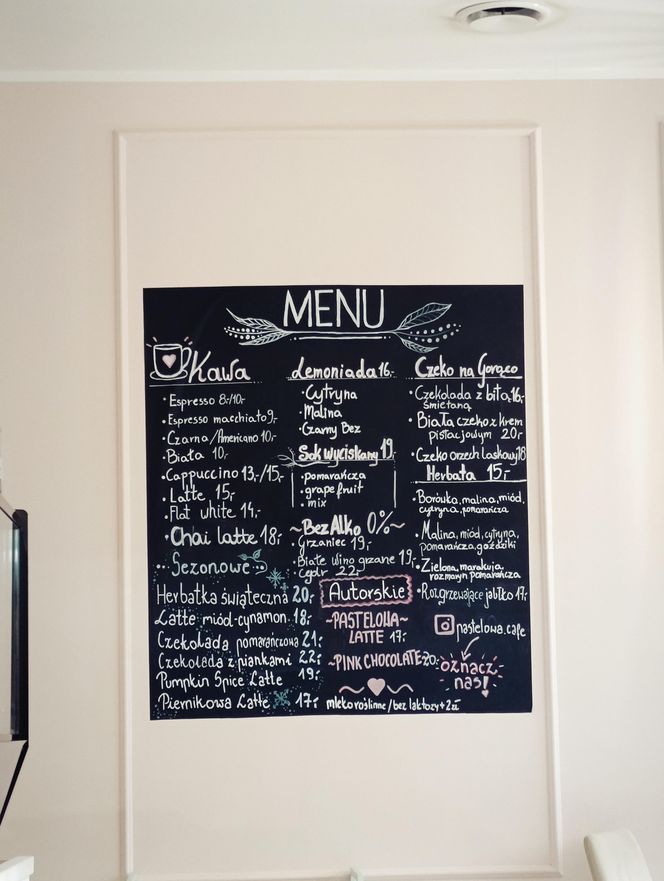 MENU
Kawa
• Espresso 8,-/10,-
• Espresso macchiato 9,-
• Czarna/Americano 10,-
• Biała 10,-
• Cappuccino 13,-/15,-
• Latte 15,-
Flat white 14,-
• Chai latte 18,-
• Sezonowe
Herbatka świąteczna 20,-
Latte miód-cynamon 18,-
Czekolada pomarańczowa 21,-
Czekolada z piankami 22,-
Pumpkin Spice Latte 19,-
Piernikowa Latte 17,-
Lemoniada 16,-
• Cytryna
Malina
• Czarny Bez
Sok wyciskany 19,-
• pomarańcza
• grapefruit
• mix
~Bez Alko 0%~
• Grzaniec 19,-
• Białe wino grzane 19,-
Cydr 22,-
Autorskie
~PASTELOWA~
LATTE 17,-
~PINK CHOCOLATE 20,-
mleko roślinne/bez laktozy +2 zł
Czeko na Gorąco
• Czekolada z bitą 16,-
śmietaną
Biała czeko z krem
pistacjowym 20,-
• Czeko orzech laskowy 18
Herbata 15,-
• Borówka, malina, miód,
cytryna, pomarańcza
• Malina, miód, cytryna,
pomarańcza, goździki
• Zielona, marakuja,
rozmaryn pomarańcza
• Rozgrzewające jabłko 17,-
pastelowa.cafe
oznacz
nas!